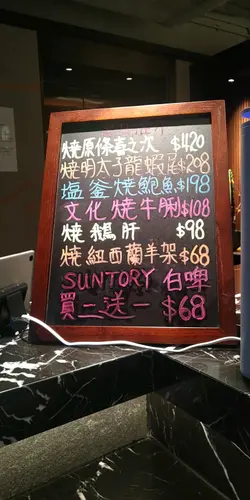 燒原條喜之次 $420
燒明太子龍蝦尾$208
塩釜燒鮑魚$198
文化燒牛脷$108
燒鵝肝 $98
燒紐西蘭羊架$68
SUNTORY 白啤
買二送一 $68